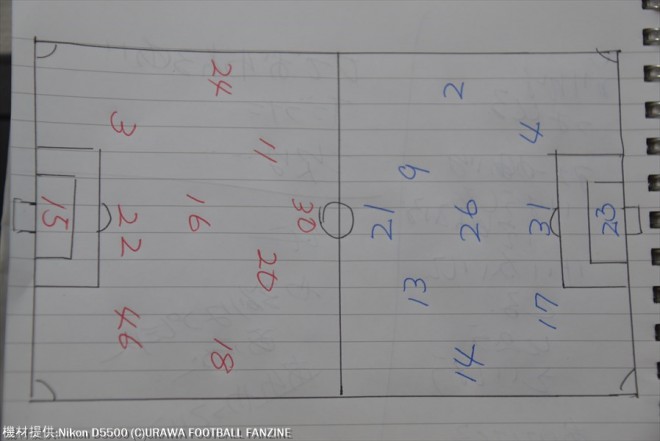 24
2
3
11
4
9
15
22
16
30
21
26
31
23
20
13
46
18
14
17
機材提供:Nikon D5500 (C)URAWA FOOTBALL FANZINE